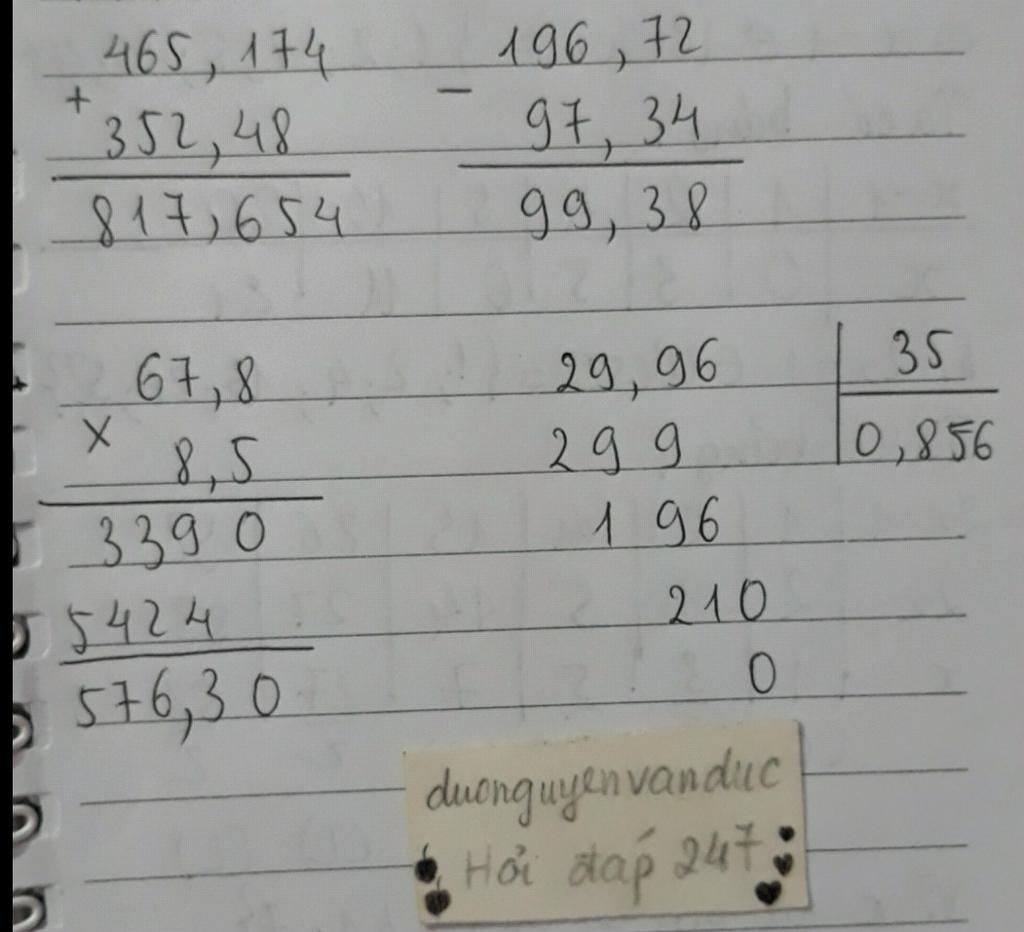 465,174 196,72
+ −
352,48 97,34
817,654 99,38
67,8 29,96 35
x
8,5 299 0,856
3390 196
5424 210
576,30 0
duonguyenvanduc
Hỏi đáp 247